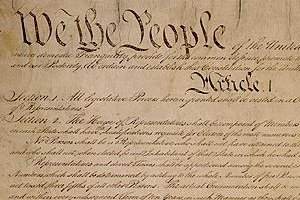 We the People of the United
insure domestic Tranquility, provide for the common defence, promote the
and our Posterity, do ordain and establish this Constitution for the
Article. I.
Section. 1. All legislative Powers herein granted shall be vested in a
of Representatives.
Section. 2. The House of Representatives shall be composed of Members
in each State shall have the Qualifications requisite for Electors of the most numerous
No Person shall be a Representative who shall not have attained to
and who shall not, when elected, be an Inhabitant of that State in which he shall
Representatives and direct Taxes shall be apportioned among the several
Numbers, which shall be determined by adding to the whole Number of free
not taxed, three fifths of all other Persons. The actual Enumeration shall be
and within every subsequent Term of ten Years, in such Manner as they shall